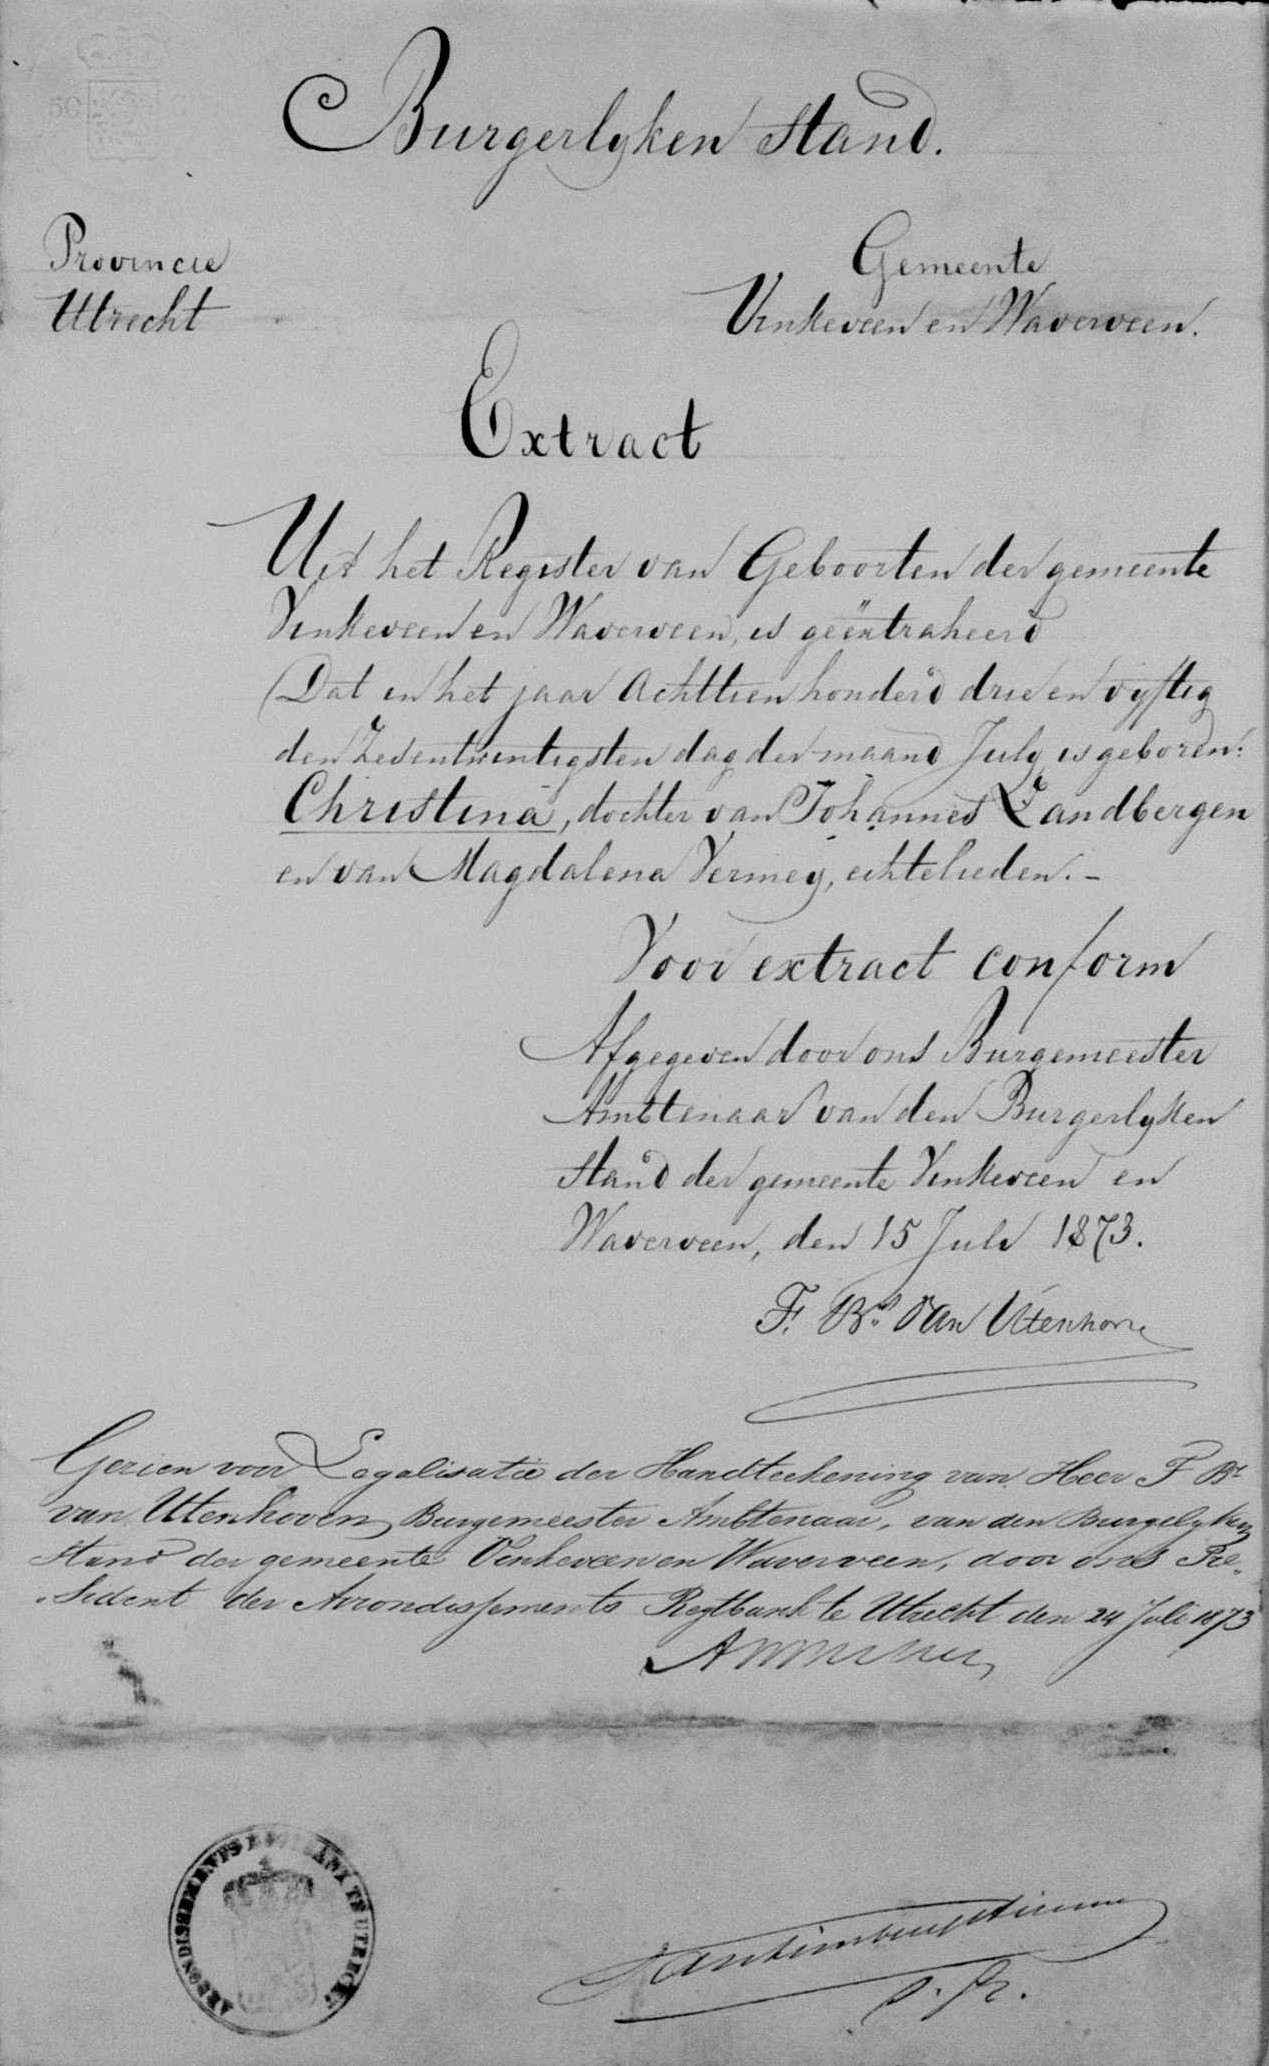 Burgerlyken Stand.
Provincie
Utrecht
Gemeente
Vinkeveen en Waverveen.
Extract
Uit het Register van Geboorten der gemeente
Vinkeveen en Waverveen, is geëxtraheerd
Dat in het jaar Achttien honderd drie en vyftig
den Zesentwintigsten dag der maand July is geboren:
Christina, dochter van Johannes Zandbergen
en van Magdalena Vermey, echtelieden. –
Voor extract conform
Afgegeven door ons Burgemeester
Ambtenaar van den Burgerlyken
Stand der gemeente Vinkeveen en
Waverveen, den 15 Juli 1873.
F. Bn. van Utenhove
Gezien voor Legalisatie der Handteekening van Heer F Bn
van Utenhoven, Burgemeester Ambtenaar, van den Burgelyken
Stand der gemeente Vinkeveen en Waverveen, door ons Pre„
„sident der Arrondissements Regtbank te Utrecht den 24 Juli 1873
50
ARRONDISSEMENTS REGTBANK TE UTRECHT